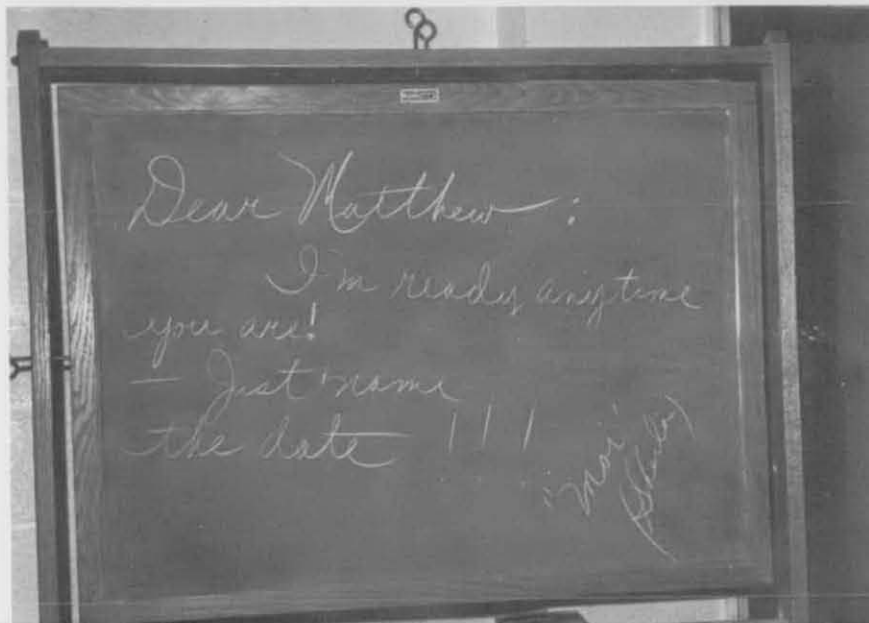 Dear Matthew :
I'm ready anytime
you are!
— Just name
the date !!!
"Moi"
Shirley